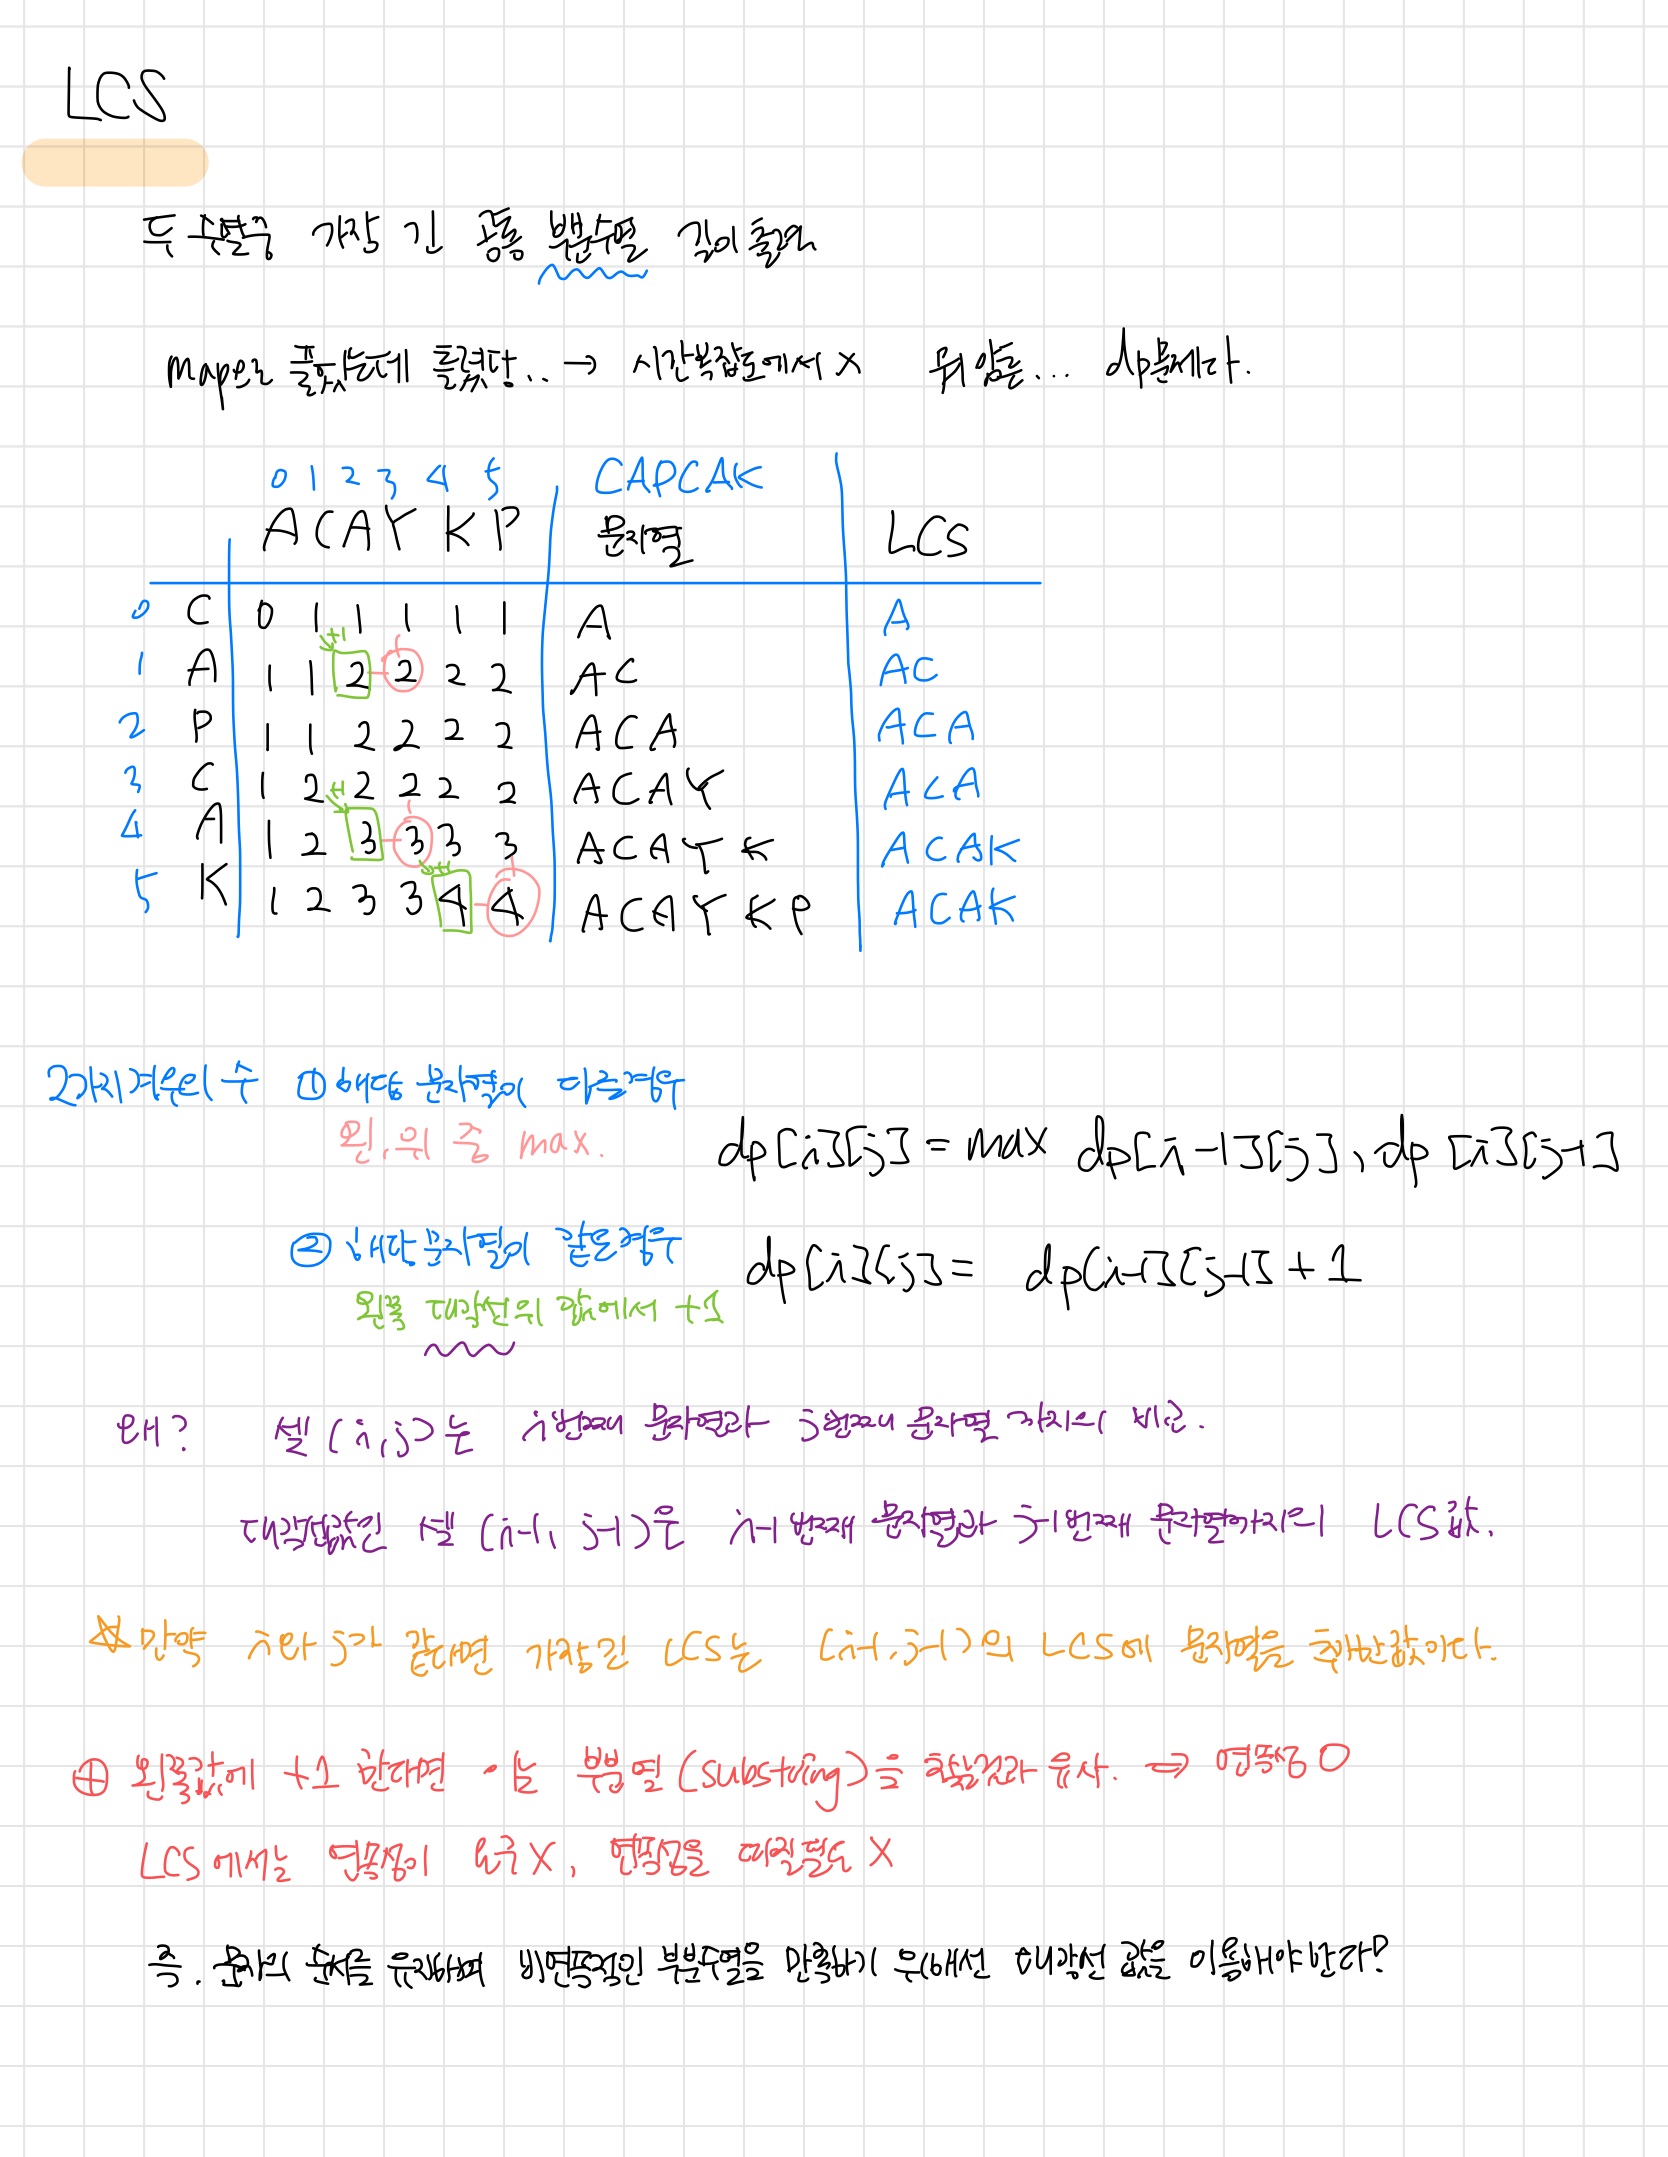 LCS
두 수열중 가장 긴 공통 부분수열 길이 출력
map으로 풀었는데 틀렸당.. → 시간복잡도에서 X 뭐 암튼... dp문제다.
0 1 2 3 4 5 CAPCAK
A C A Y K P 문자열 LCS
0 C 0 1 1 1 1 1 A A
+1
1 A 1 1 2 2 2 2 AC AC
2 P 1 1 2 2 2 2 ACA ACA
3 C 1 2 2 2 2 2 ACAY ACA
+1
4 A 1 2 3 3 3 3 ACAYK ACAK
+1
5 K 1 2 3 3 4 4 ACAYKP ACAK
2가지 경우의 수 ① 해당 문자열이 다른경우
왼, 위 중 max. dp[i][j] = max dp[i-1][j], dp[i][j-1]
② 해당 문자열이 같은경우 dp[i][j] = dp[i-1][j-1] + 1
왼쪽 대각선위 값에서 +1
왜? 셀 (i,j)는 i번째 문자열과 j번째 문자열 까지의 비교.
대각선값인 셀 (i-1, j-1)은 i-1 번째 문자열과 j-1번째 문자열까지의 LCS값.
☆ 만약 i와 j가 같다면 가장긴 LCS는 (i-1, j-1)의 LCS에 문자열을 추가한값이다.
⊕ 왼쪽값에 +1 한다면 이는 부분열(substring)을 찾는것과 유사. ⇒ 연속성 O
LCS에서는 연속성이 요구X, 연속성을 따질필요 X
즉. 문자의 순서를 유지하며 비연속적인 부분수열을 만족하기 위해선 대각선 값을 이용해야한다!